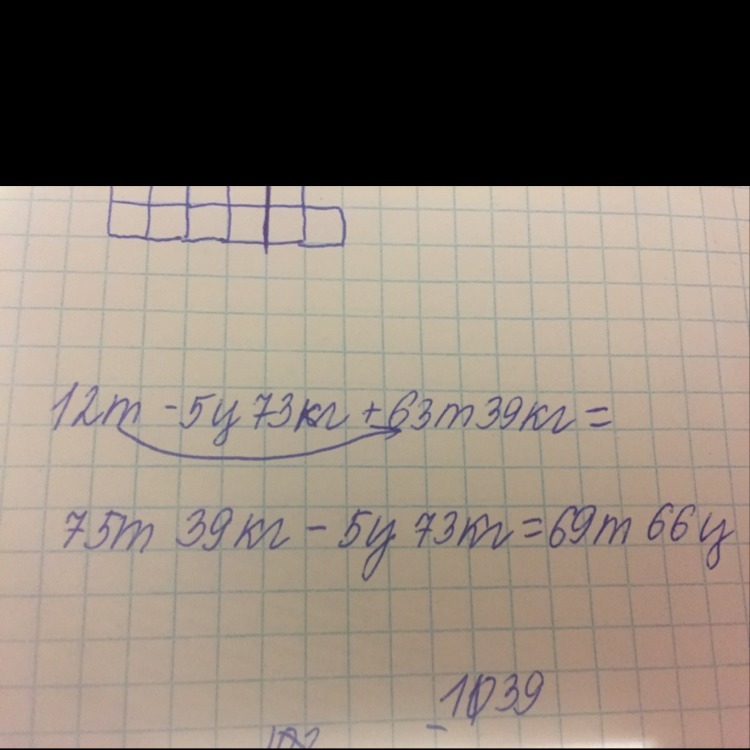 12т - 5ц 73кг + 63т 39кг =
75т 39кг - 5ц 73кг = 69т 66ц
- 1039